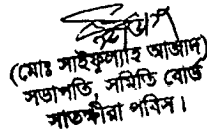 (মোঃ সাইফুল্যাহ আজাদ)
সভাপতি, সমিতি বোর্ড
সাতক্ষীরা পবিস।